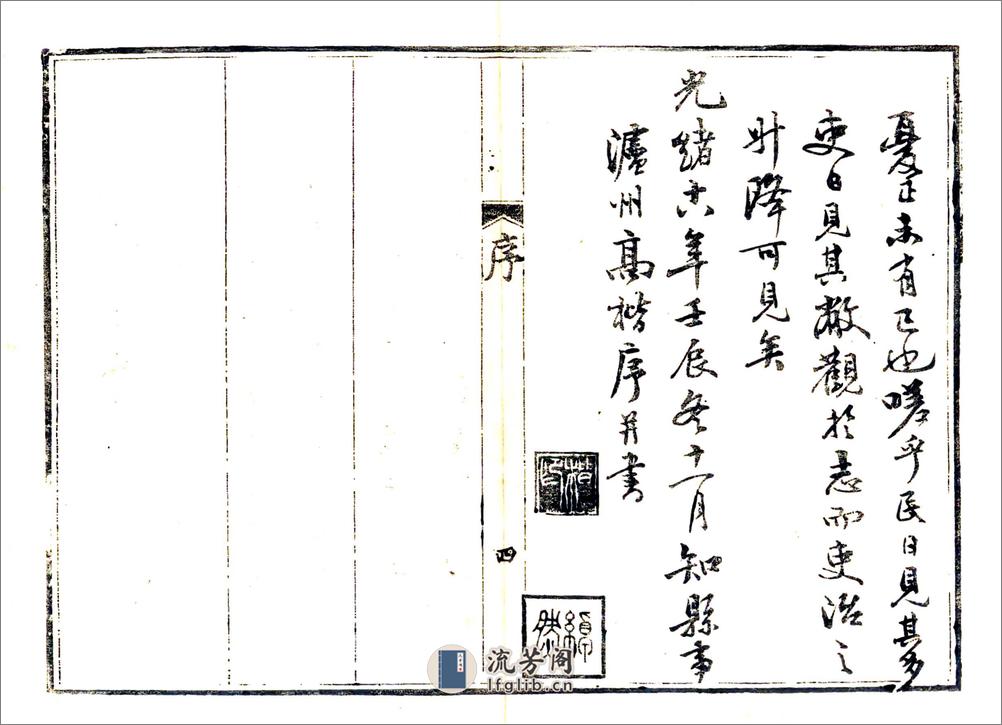 憂正未有已也嗟乎民日見其多
吏日見其敝觀於志而吏治之
升降可見矣
光緒十八年壬辰冬十一月知縣事
瀘州高楷序并書
楷印
序
四
流芳阁
lfglib.cn